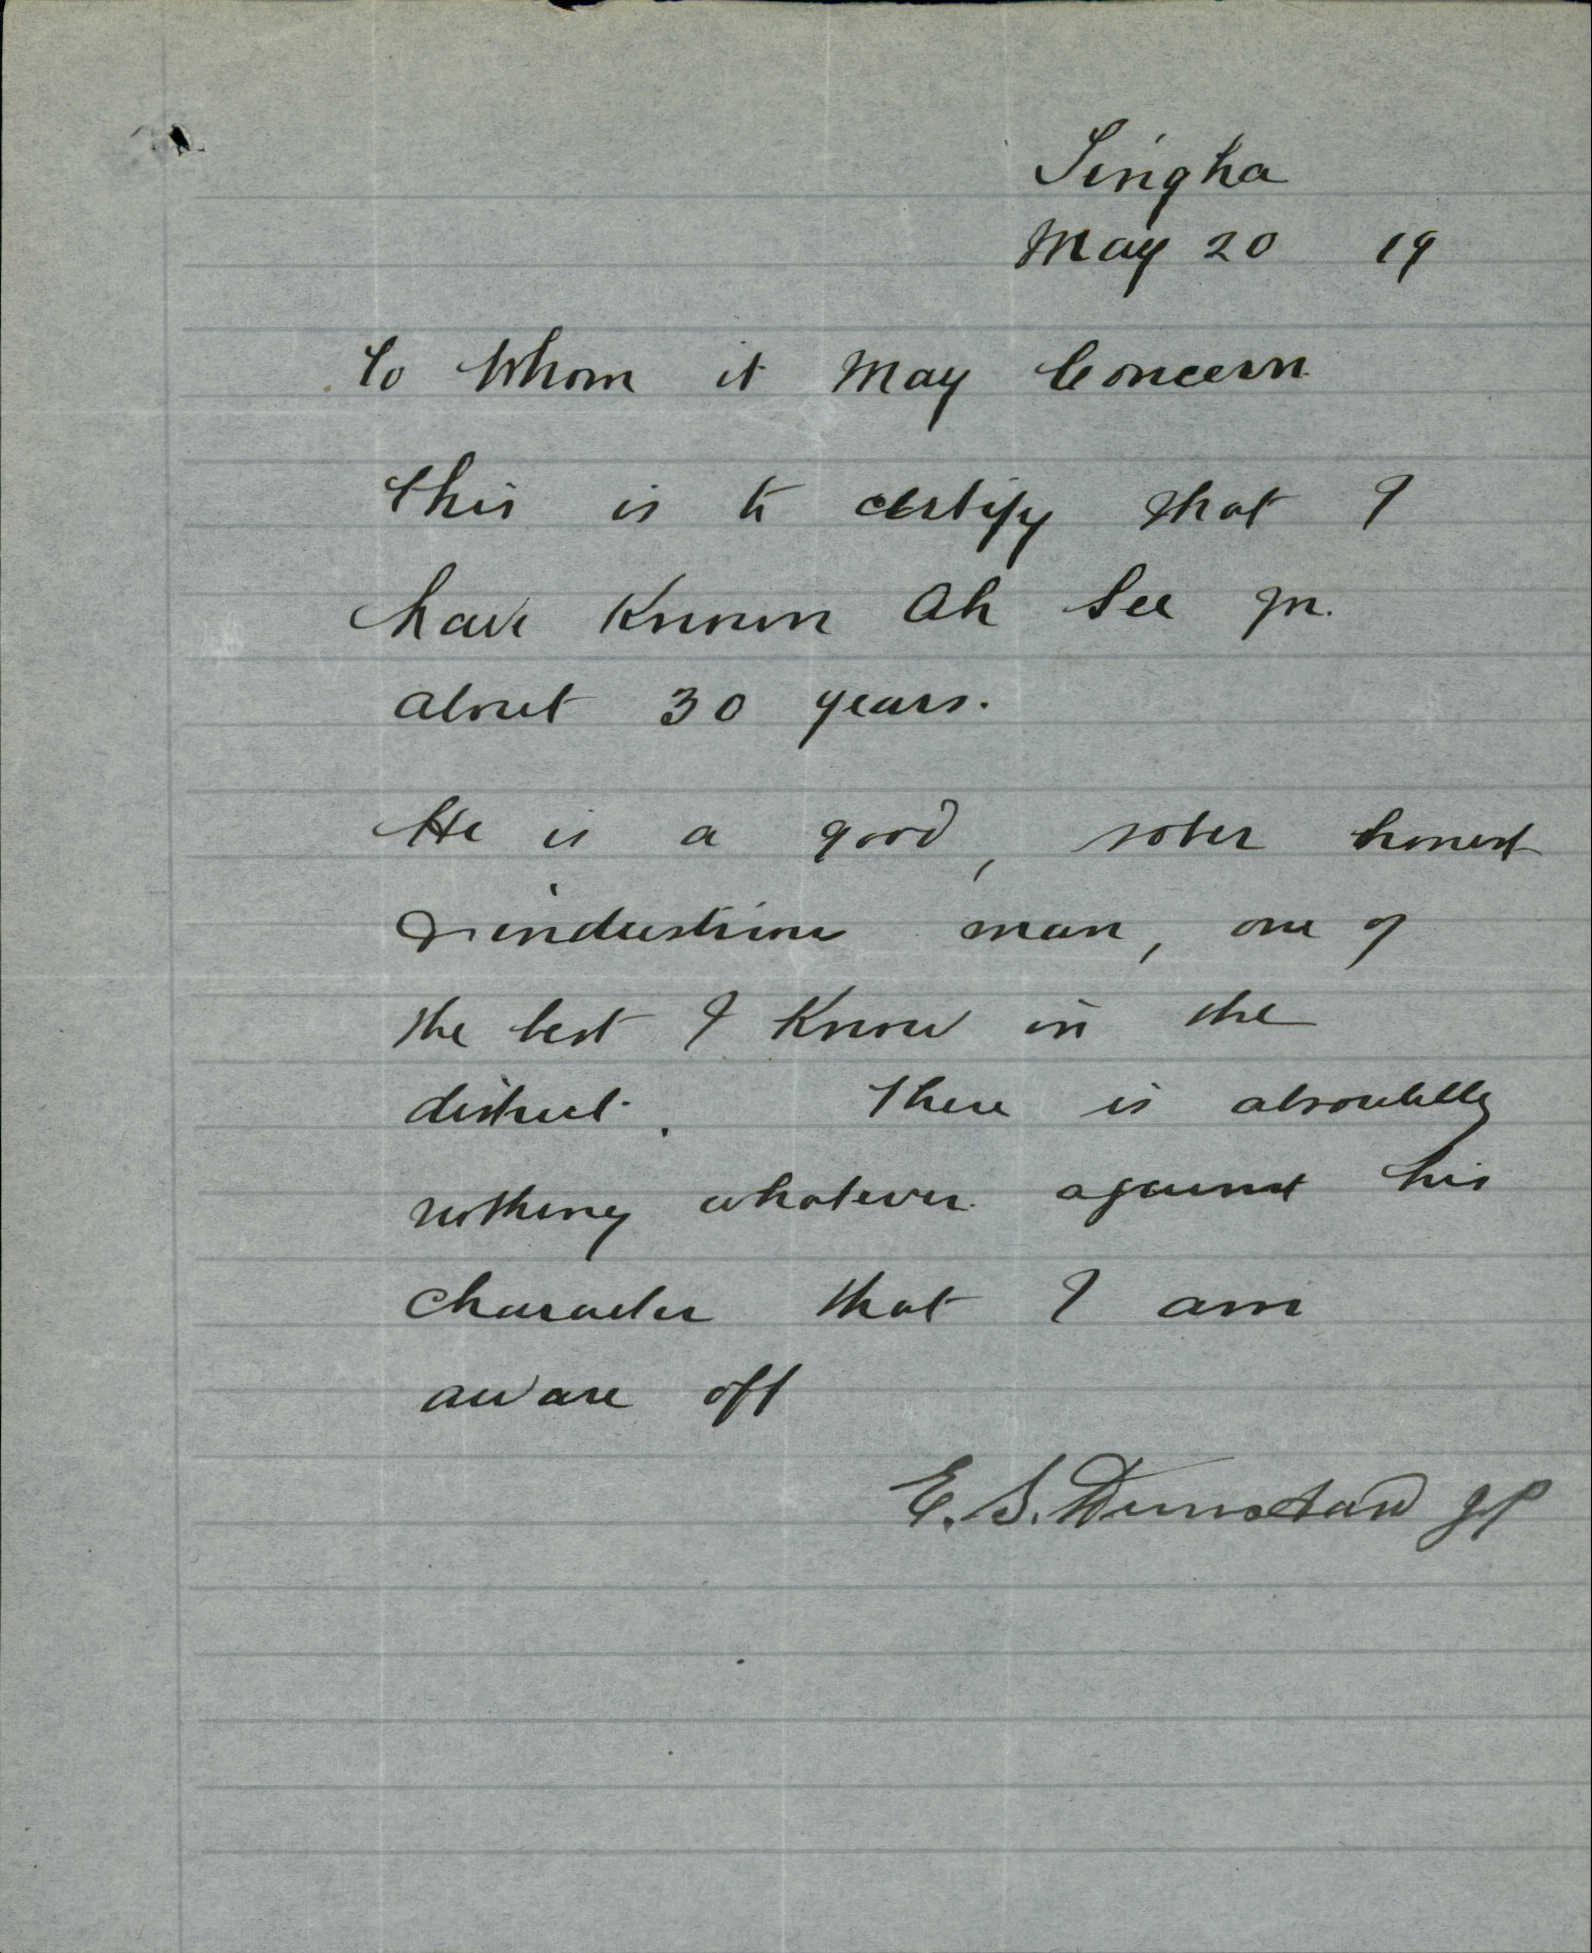 Tingha
May 20 19
To Whom it May Concern
This is to certify that I
have Known Ah See for
about 30 years.
He is a good, sober honest
& industrious man, one of
the best I Know in the
district. There is absoutelly
nothing whatever against his
character that I am
aware off
E. S. Dunstan JP